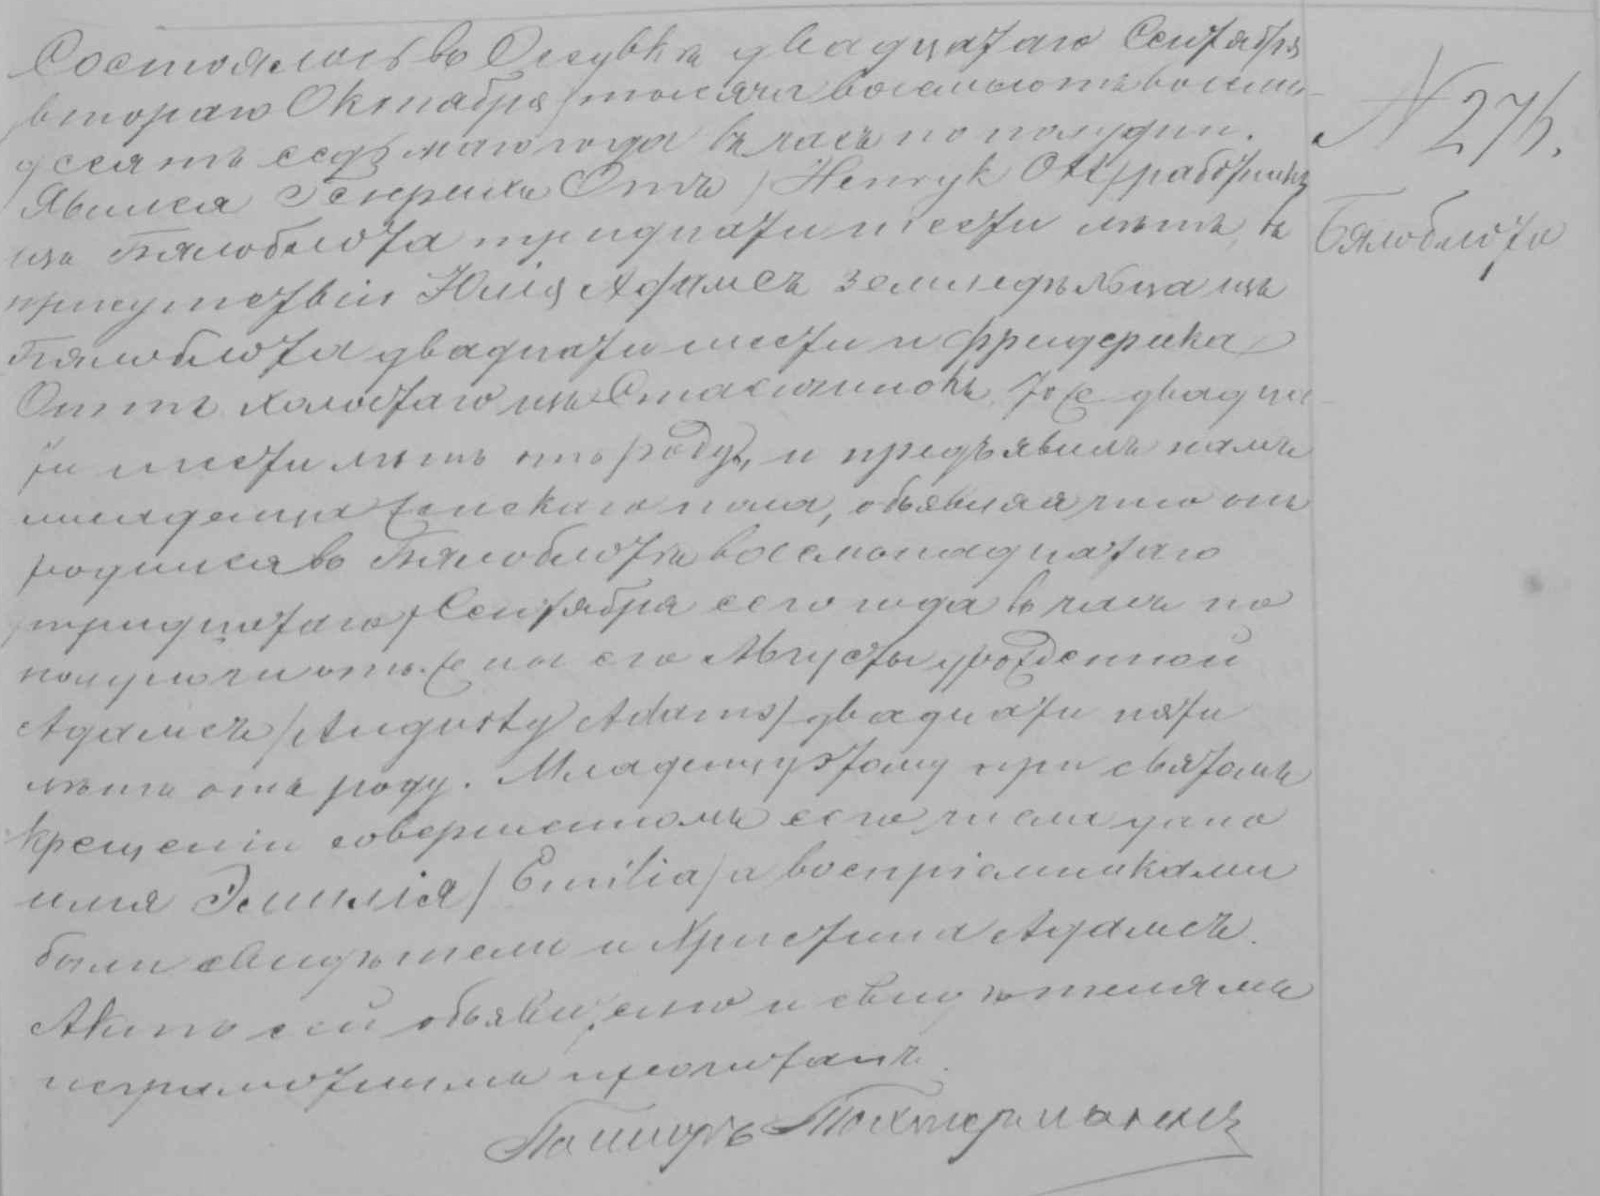 Состоялось въ Осувкѣ двадцатаго Сентября
втораго Октября тысяча восемьсотъ восемь
десятъ седьмаго года въ часъ по полудни.
Явился Генрихъ Отъ / Henryk Ott / работникъ
изъ Бялоблота тридцати шести лѣтъ, въ
присутствіи Юлія Адамсъ земледѣльца изъ
Бялоблота двадцати шести и Фридерика
Оттъ холостаго изъ тоже двадца
ти шести лѣтъ отъ роду, и предъявилъ намъ
младенца женскаго пола, объявляя что онъ
родился въ Бялоблотѣ восемонадцатаго
тридцатаго Сентября сего года въ часъ по
полуночи отъ жены его Августы урожденной
Адамсъ / Augusty Adams / двадцати пяти
лѣтъ отъ роду. Младенцу этому при святомъ
крещеніи совершенномъ сего числа дано
имя Эмилія / Emilia / а воспріемниками
были свидѣтели и Христина Адамсъ.
Актъ сей объявляющему и свидѣтелямъ
неграмотнымъ прочитанъ.
Пасторъ
N 276.
Бялоблота